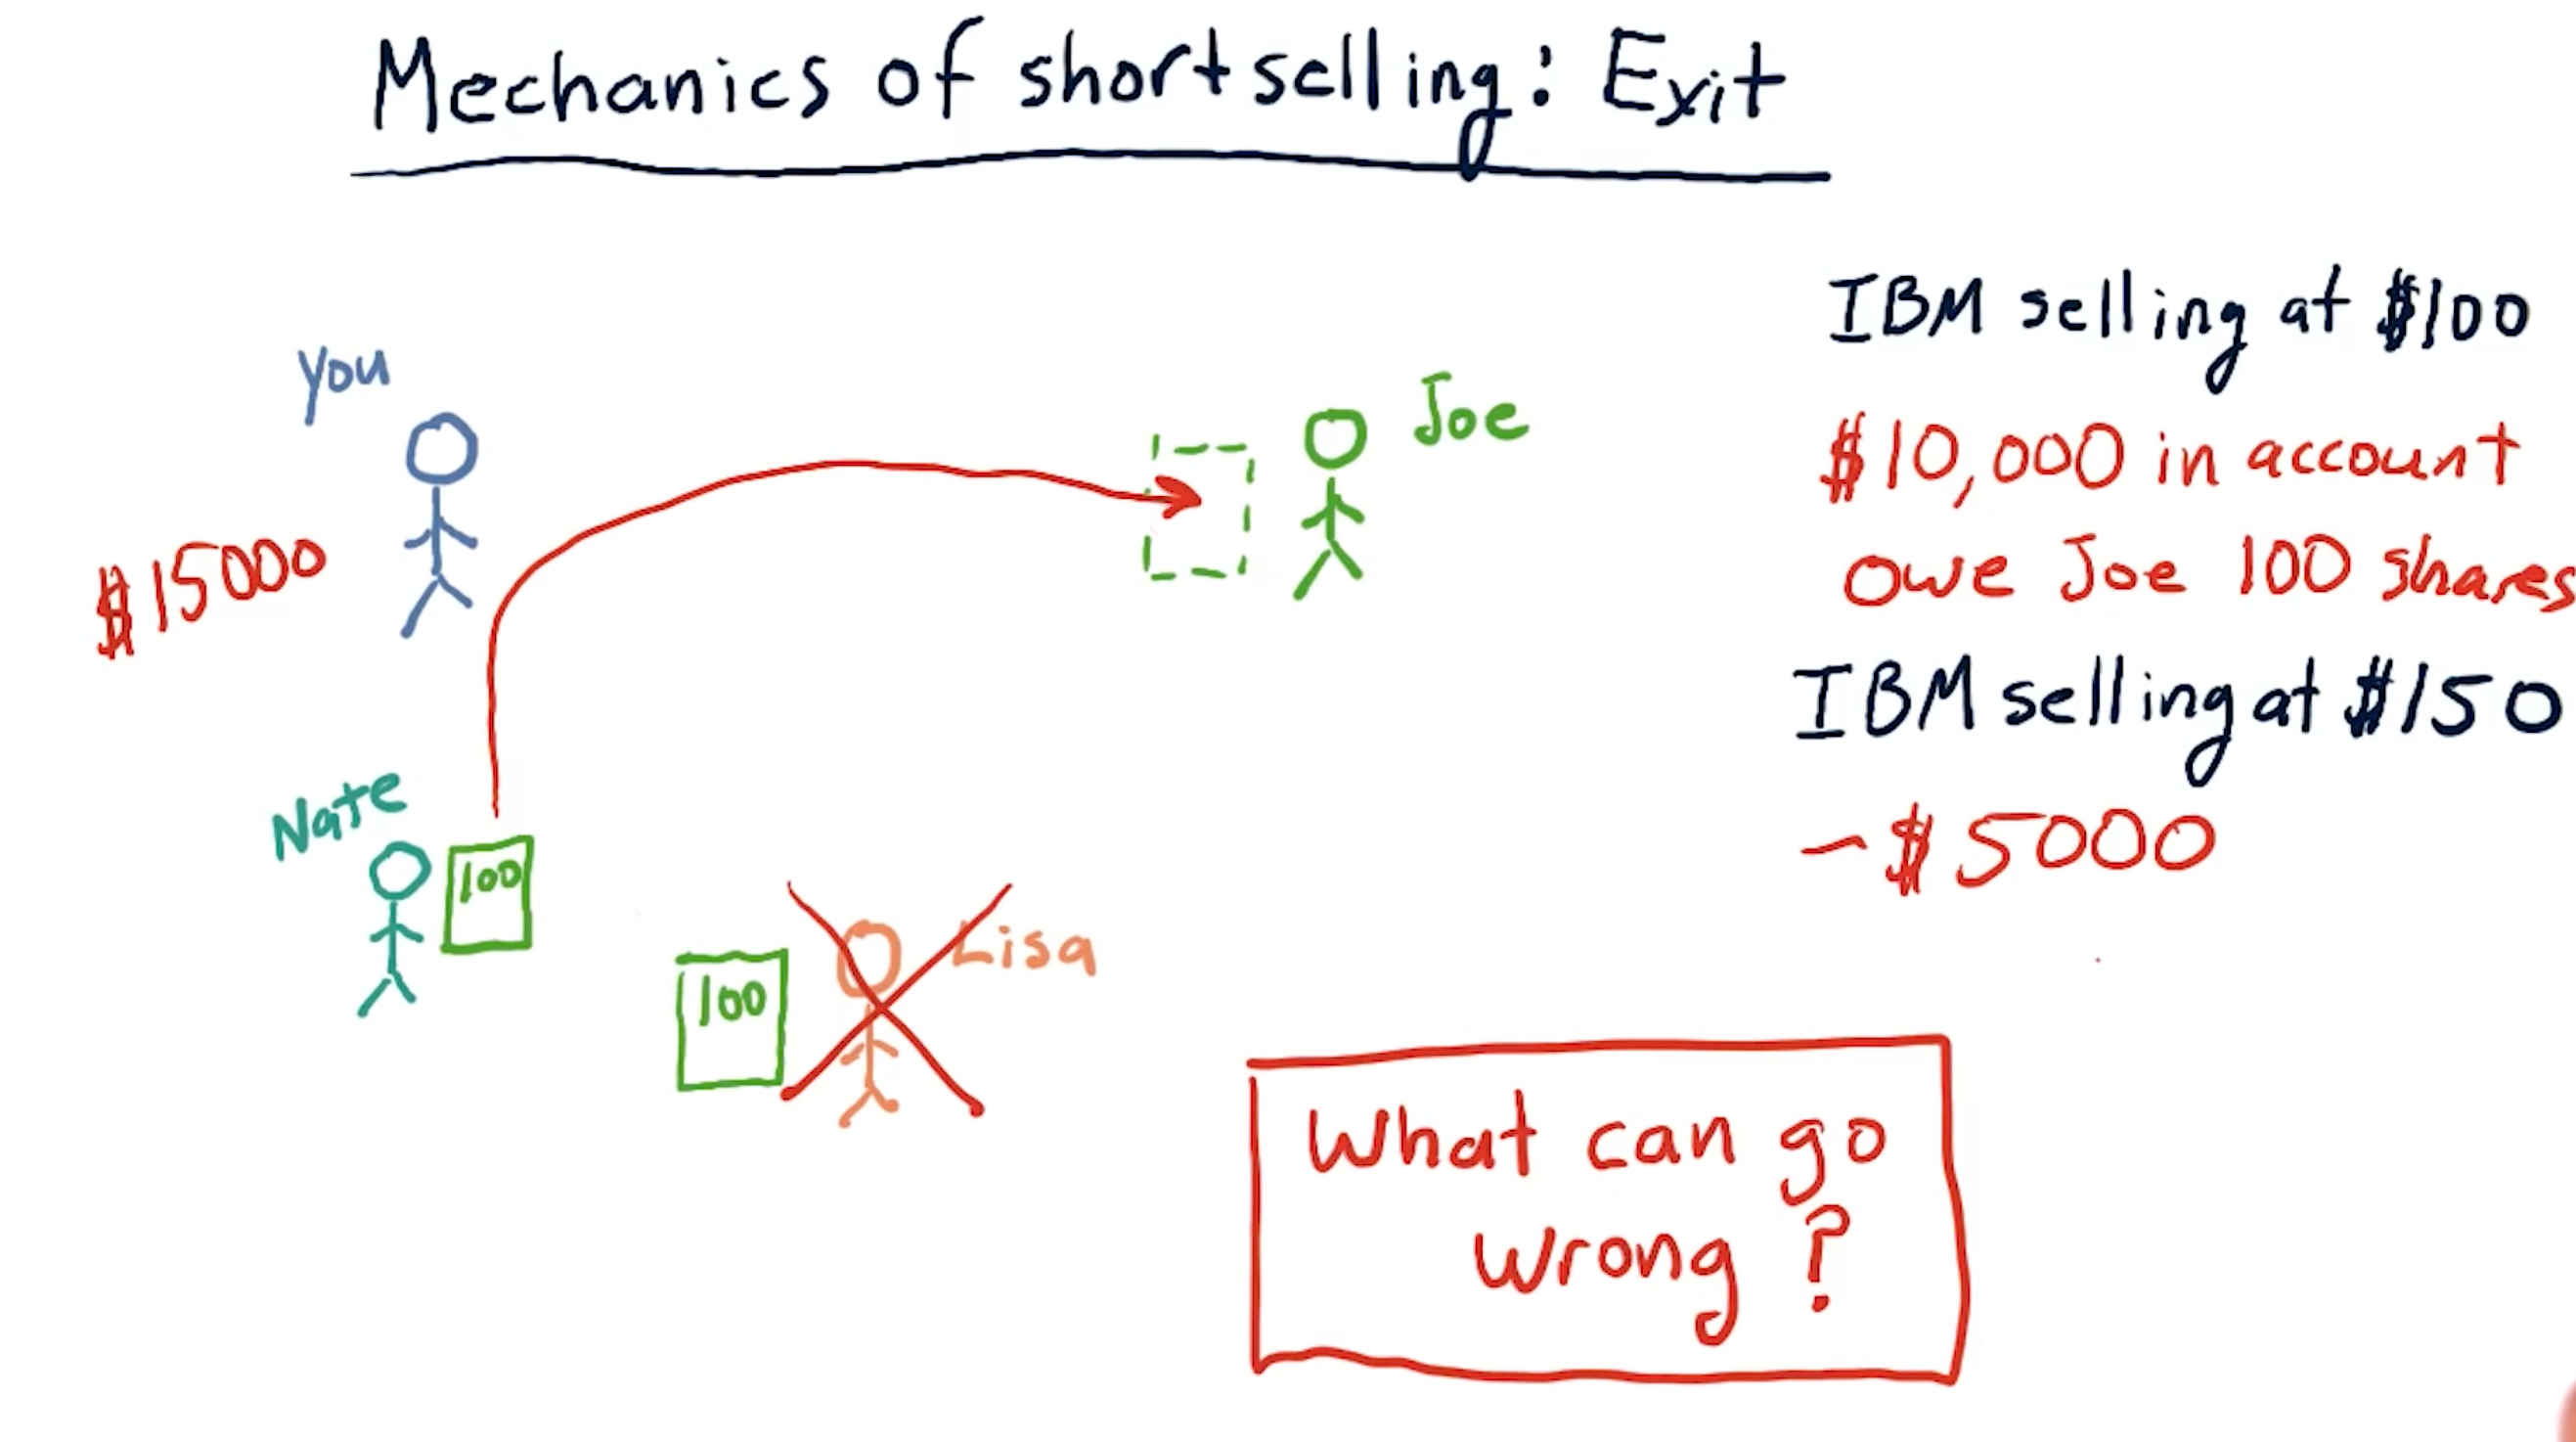 Mechanics of short selling: Exit
you
Joe
$15000
Nate
100
100
Lisa
IBM selling at $100
$10,000 in account
owe Joe 100 shares
IBM selling at $150
-$5000
What can go
wrong?